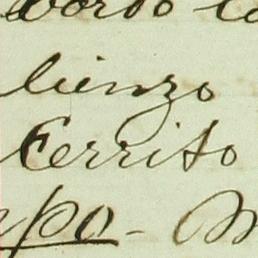 lienzo
Cerrito
po - M